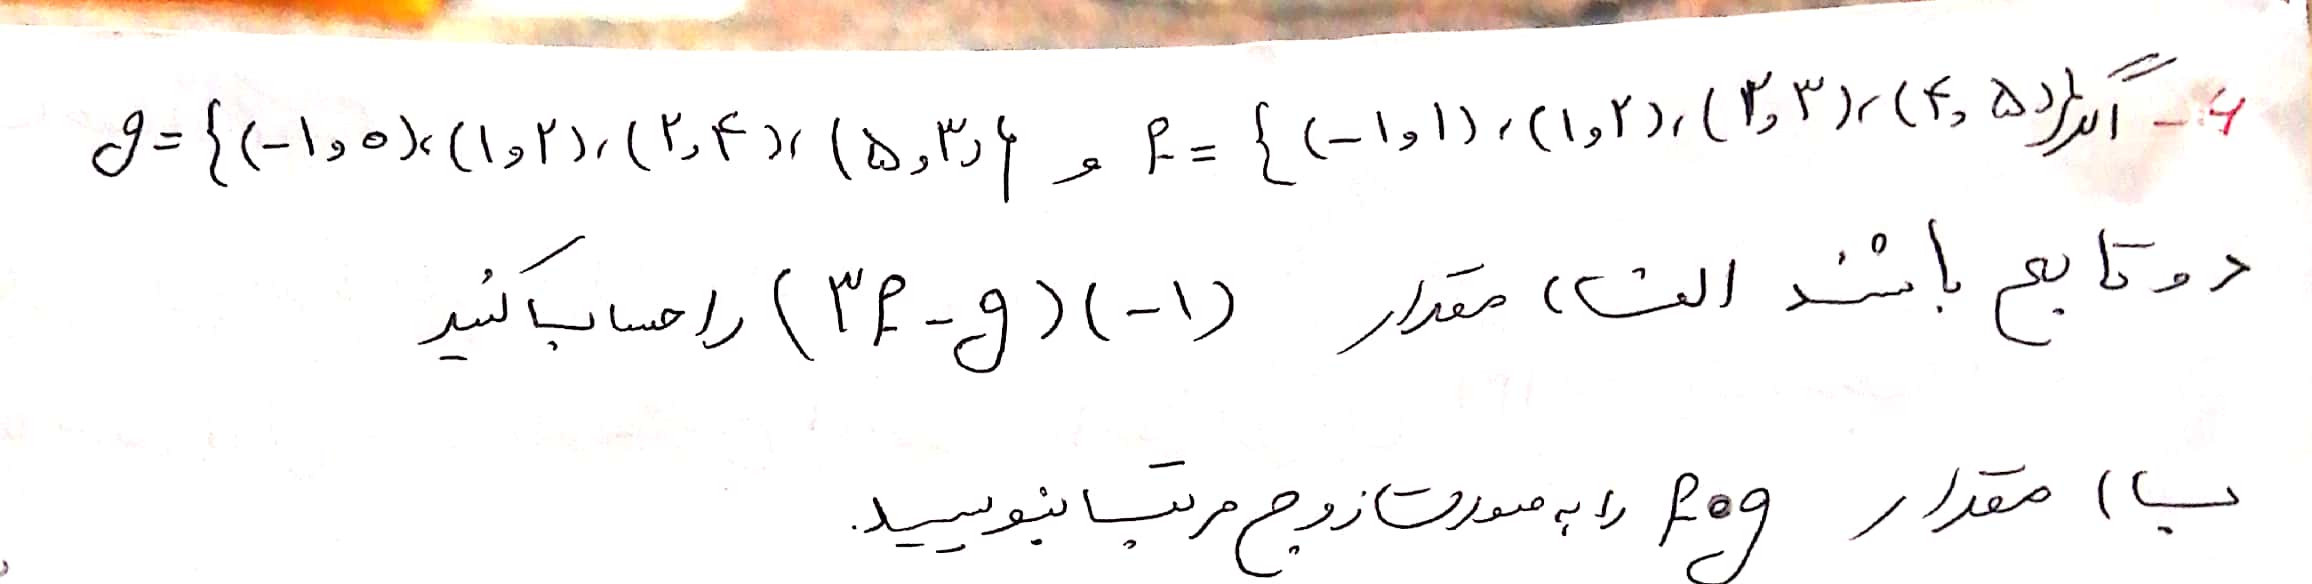 ۶- اگر f = {(-۱و۱)،(۱و۲)،(۲و۳)،(۴و۵)} و g = {(-۱و۰)،(۱و۲)،(۲و۴)،(۵و۳)}
دو تابع باشند الف) مقدار (۳f - g)(-۱) را حساب کنید
ب) مقدار fog را به صورت زوج مرتب بنویسید.